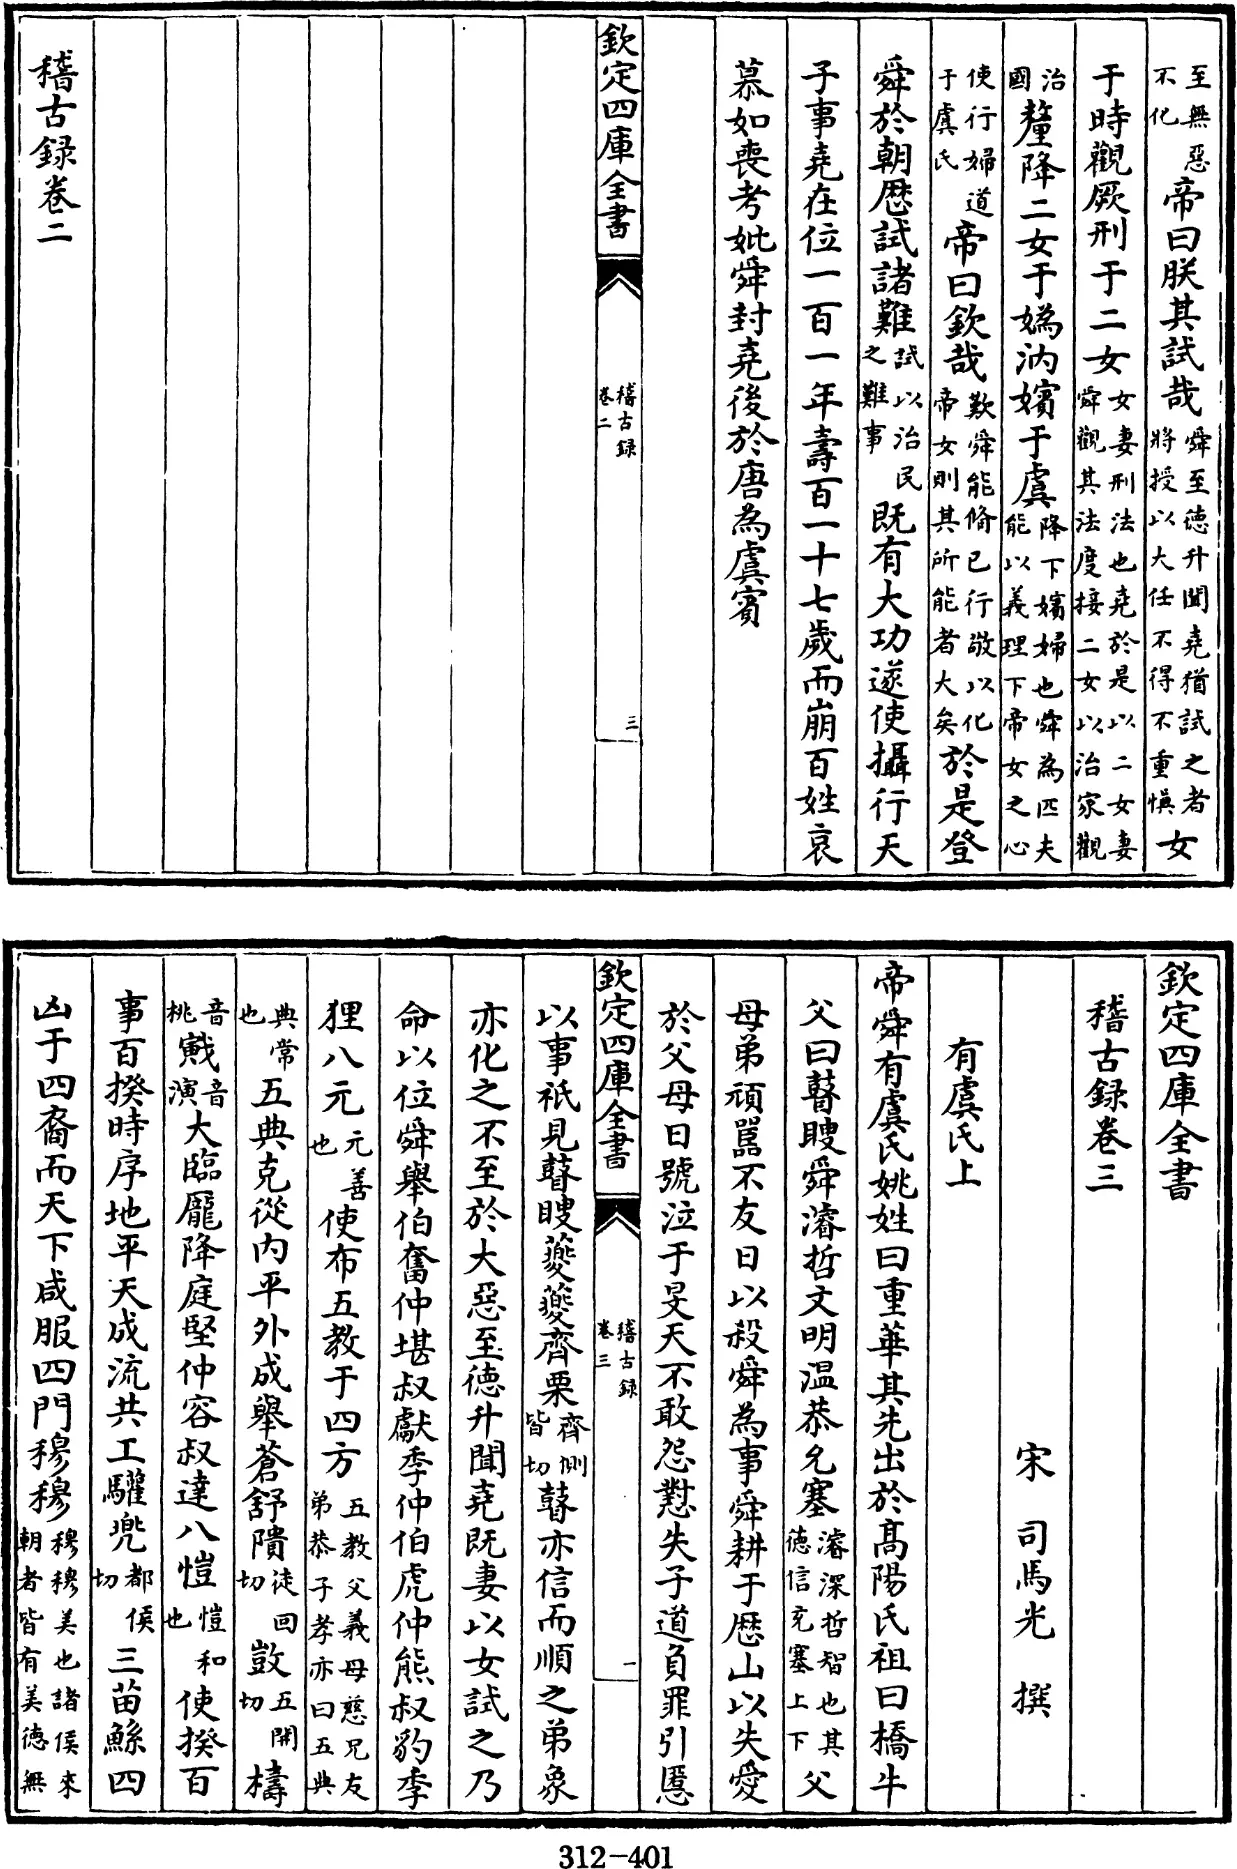 至無惡不化帝曰朕其試哉舜至德升聞堯猶試之者將授以大任不得不重慎女
于時觀厥刑于二女女妻刑法也堯於是以二女妻舜觀其法度接二女以治家觀
治國釐降二女于嬀汭嬪于虞降下嬪婦也舜為匹夫能以義理下帝女之心
使行婦道于虞氏帝曰欽哉歎舜能脩已行敬以化帝女則其所能者大矣於是登
舜於朝歴試諸難試以治民之難事既有大功遂使攝行天
子事堯在位一百一年壽百一十七歲而崩百姓哀
慕如喪考妣舜封堯後於唐為虞賓
欽定四庫全書
稽古録
卷二
三
稽古録卷二
欽定四庫全書
稽古録卷三
宋 司馬光 撰
有虞氏上
帝舜有虞氏姚姓曰重華其先出於髙陽氏祖曰橋牛
父曰瞽瞍舜濬哲文明温恭允塞濬深哲智也其德信充塞上下父
母弟頑嚚不友日以殺舜為事舜耕于歴山以失愛
於父母日號泣于旻天不敢怨懟失子道負罪引慝
欽定四庫全書
稽古録
卷三
一
以事祇見瞽瞍夔夔齊栗齊側皆切瞽亦信而順之弟象
亦化之不至於大惡至德升聞堯既妻以女試之乃
命以位舜舉伯奮仲堪叔獻季仲伯虎仲熊叔豹季
狸八元元善也使布五教于四方五教父義母慈兄友弟恭子孝亦曰五典
典常也五典克從内平外成舉蒼舒隤徒回切敱五開切檮
音桃戭音演大臨龎降庭堅仲容叔達八愷愷和也使揆百
事百揆時序地平天成流共工驩兜都侯切三苗鯀四
凶于四裔而天下咸服四門穆穆穆穆美也諸侯來朝者皆有美德無
312-401